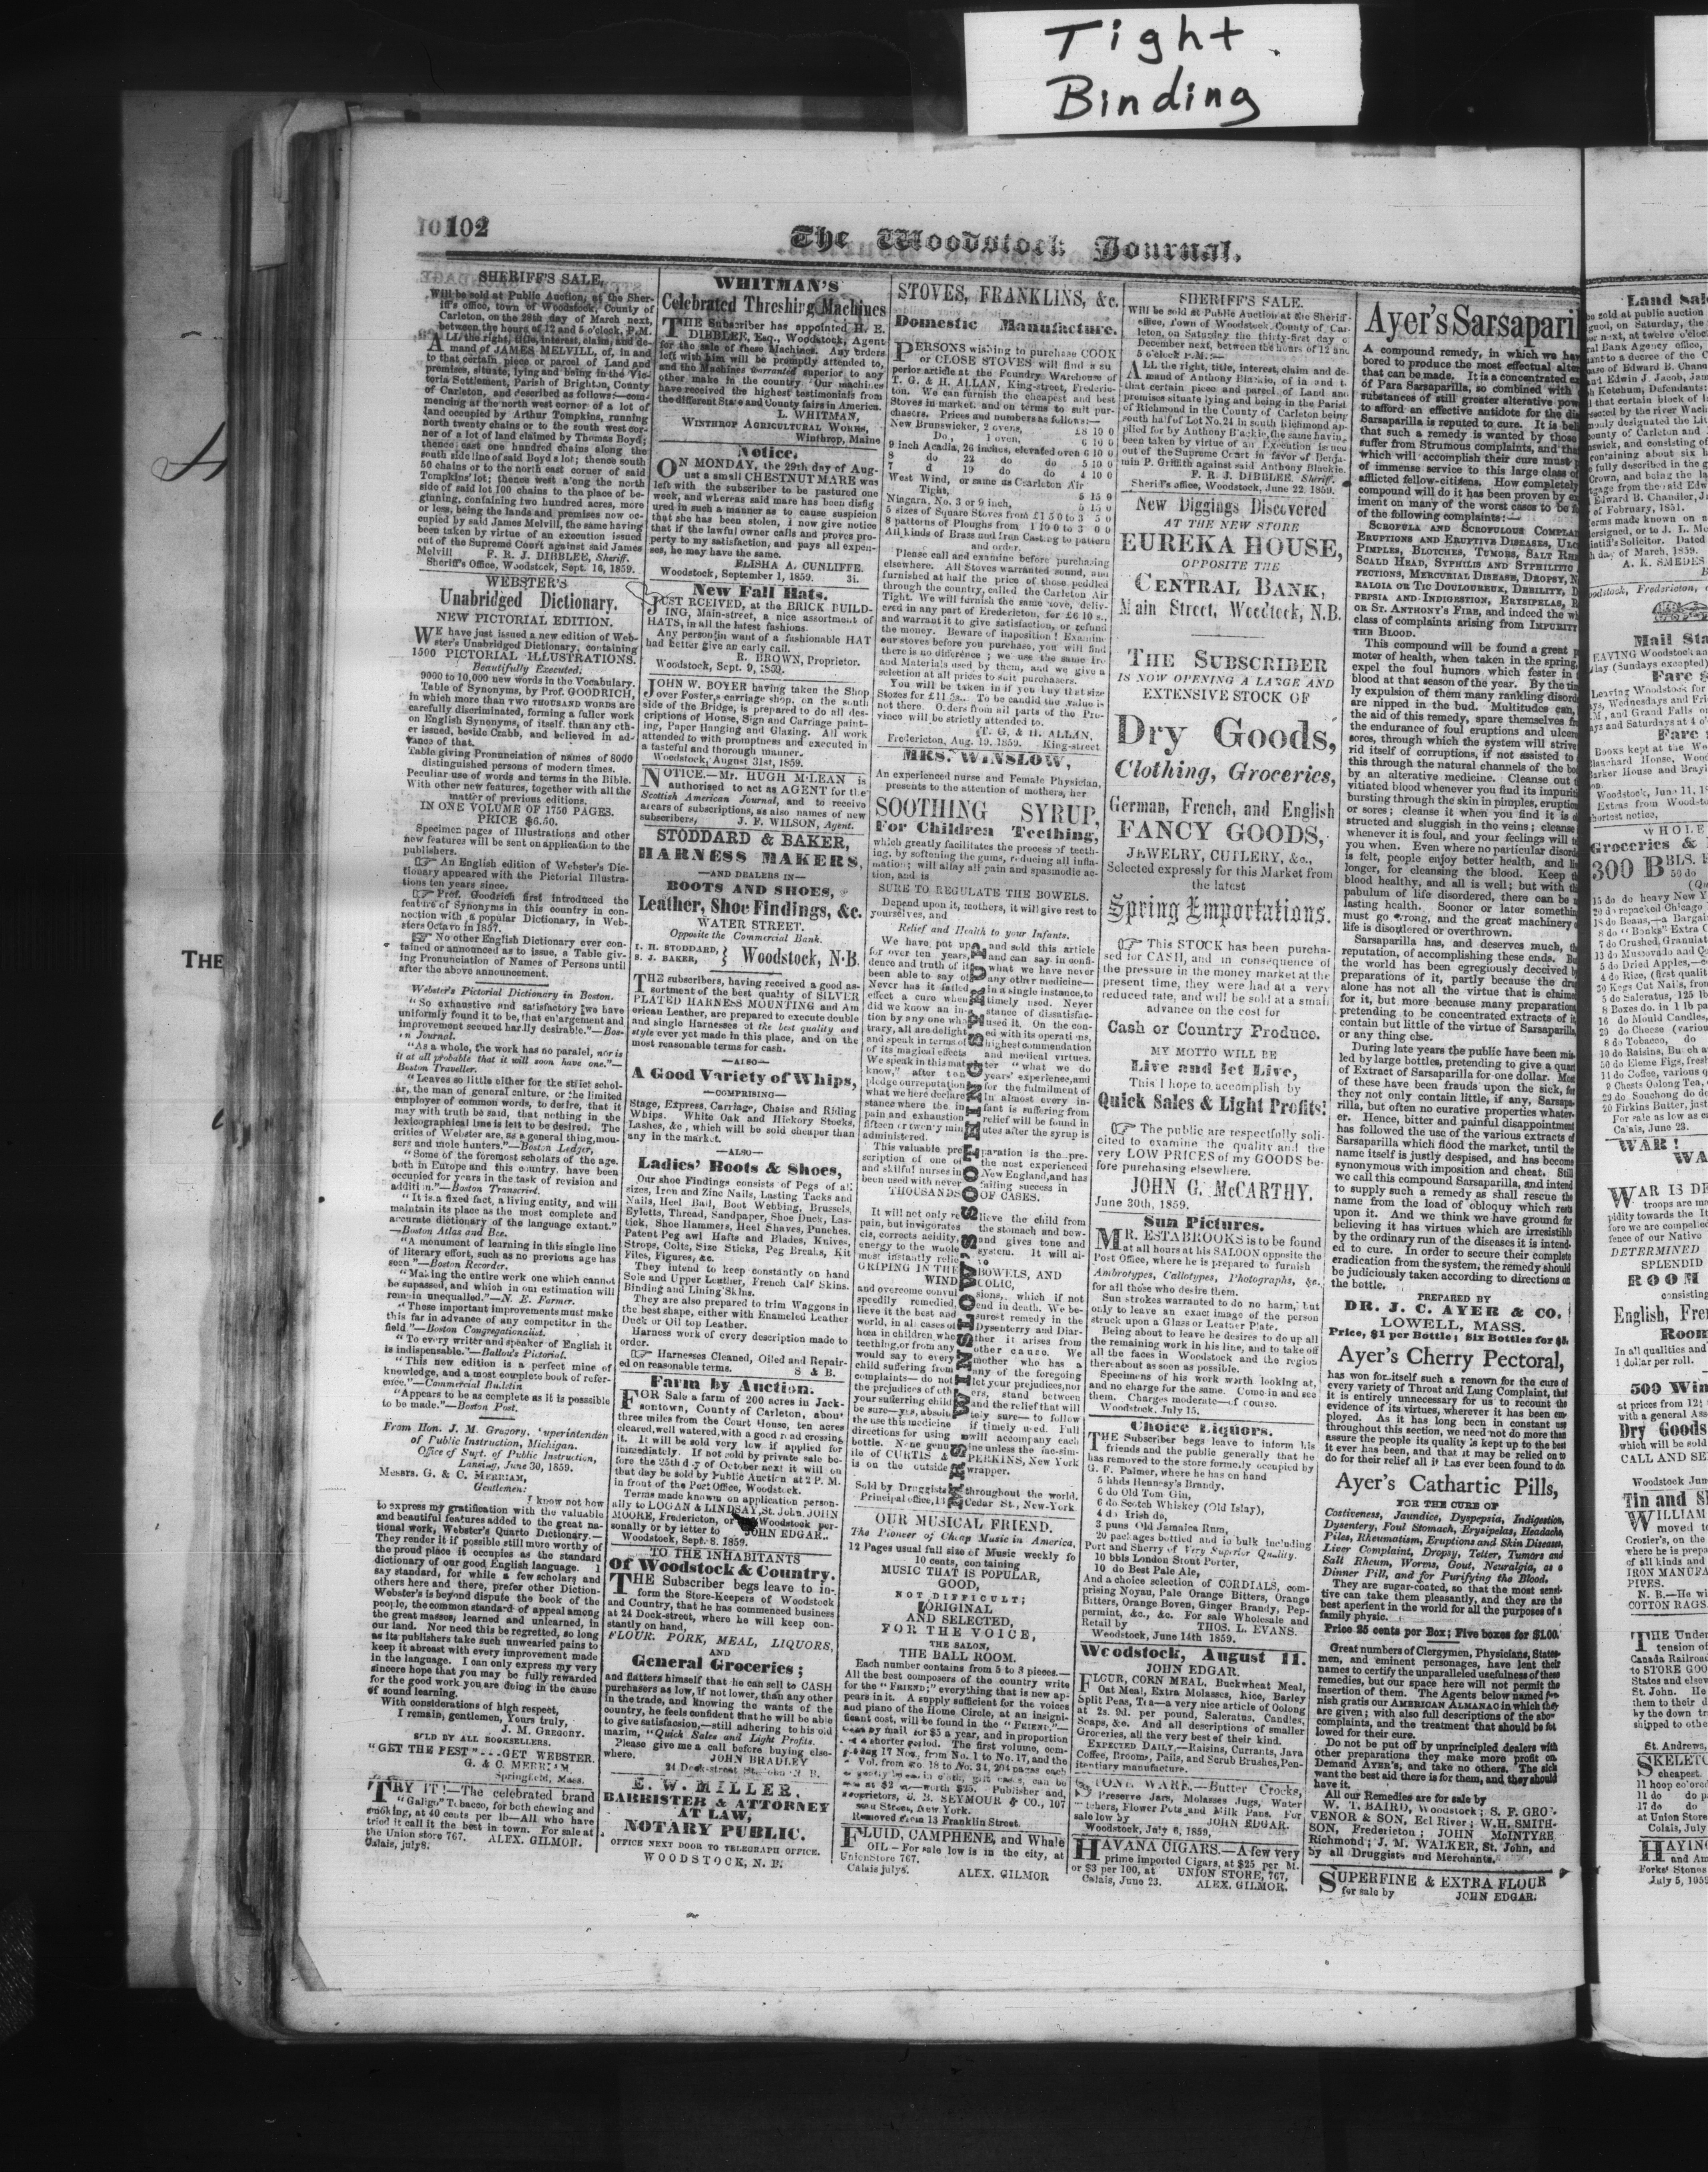 Tight
Binding
102
The Woodstock Journal.
SHERIFF'S SALE,
Will be sold at Public Auction, at the Sher-
iff's office, town of Woodstock, County of
Carleton, on the 28th day of March next,
between the hours of 12 and 5 o'clock, P.M.
ALL the right, title, interest, claim, and de-
mand of JAMES MELVILL, of, in and
to that certain piece or parcel of Land and
premises, situate, lying and being in the Vic-
toria Settlement, Parish of Brighton, County
of Carleton, and described as follows:—com-
mencing at the north west corner of a lot of
land occupied by Arthur Tompkins, running
north twenty chains or to the south west cor-
ner of a lot of land claimed by Thomas Boyd;
thence east one hundred chains along the
south side line of said Boyd's lot; thence south
50 chains or to the north east corner of said
Tompkins' lot; thence west along the north
side of said lot 100 chains to the place of be-
ginning, containing two hundred acres, more
or less, being the lands and premises now oc-
cupied by said James Melvill, the same having
been taken by virtue of an execution issued
out of the Supreme Court against said James
Melvill F. R. J. DIBBLEE, Sheriff.
Sheriff's Office, Woodstock, Sept. 16, 1859.
WEBSTER'S
Unabridged Dictionary.
NEW PICTORIAL EDITION.
WE have just issued a new edition of Web-
ster's Unabridged Dictionary, containing
1500 PICTORIAL ILLUSTRATIONS.
Beautifully Executed.
9000 to 10,000 new words in the Vocabulary.
Table of Synonyms, by Prof. GOODRICH,
in which more than TWO THOUSAND WORDS are
carefully discriminated, forming a fuller work
on English Synonyms, of itself, than any oth-
er issued, beside Crabb, and believed in ad-
vance of that.
Table giving Pronunciation of names of 8000
distinguished persons of modern times.
Peculiar use of words and terms in the Bible.
With other new features, together with all the
matter of previous editions.
IN ONE VOLUME OF 1750 PAGES.
PRICE $6,50.
Specimen pages of Illustrations and other
new features will be sent on application to the
publishers.
An English edition of Webster's Dic-
tionary appeared with the Pictorial Illustra-
tions ten years since.
Prof. Goodrich first introduced the
feature of Synonyms in this country in con-
nection with a popular Dictionary, in Web-
sters Octavo in 1857.
No other English Dictionary ever con-
tained or announced as to issue, a Table giv-
ing Pronunciation of Names of Persons until
after the above announcement.
Webster's Pictorial Dictionary in Boston.
"So exhaustive and satisfactory we have
uniformly found it to be, that enlargement and
improvement seemed hardly desirable."—Bos-
ton Journal.
"As a whole, the work has no paralel, nor is
it at all probable that it will soon have one."—
Boston Traveller.
"Leaves so little either for the strict schol-
ar, the man of general culture, or the limited
employer of common words, to desire, that it
may with truth be said, that nothing in the
lexicographical line is left to be desired. The
critics of Webster are, as a general thing, mou-
sers and mole hunters."—Boston Ledger.
"Some of the foremost scholars of the age,
both in Europe and this country, have been
occupied for years in the task of revision and
addition."—Boston Transcript.
"It is a fixed fact, a living entity, and will
maintain its place as the most complete and
accurate dictionary of the language extant."
—Boston Atlas and Bee.
"A monument of learning in this single line
of literary effort, such as no previous age has
seen."—Boston Recorder.
"Making the entire work one which cannot
be supassed, and which in our estimation will
remain unequalled."—N. E. Farmer.
"These important improvements must make
this far in advance of any competitor in the
field."—Boston Congregationalist.
"To every writer and speaker of English it
is indispensable."—Ballou's Pictorial.
"This new edition is a perfect mine of
knowledge, and a most complete book of refer-
ence."—Commercial Bulletin
"Appears to be as complete as it is possible
to be made."—Boston Post.
From Hon. J. M. Gregory, Superintenden
of Public Instruction, Michigan.
Office of Supt. of Public Instruction,
Lansing, June 30, 1859.
Messrs. G. & C. MERRIAM,
Gentlemen:
I know not how
to express my gratification with the valuable
and beautiful features added to the great na-
tional work, Webster's Quarto Dictionary.—
They render it if possible still more worthy of
the proud place it occupies as the standard
dictionary of our good English language. I
say standard, for while a few scholars and
others here and there, prefer other Diction-
Webster's is beyond dispute the book of the
people, the common standard of appeal among
the great masses, learned and unlearned, in
our land. Nor need this be regretted, so long
as its publishers take such unwearied pains to
keep it abreast with every improvement made
in the language. I can only express my very
sincere hope that you may be fully rewarded
for the good work you are doing in the cause
of sound learning.
With considerations of high respect,
I remain, gentlemen, Yours truly,
J. M. GREGORY.
SOLD BY ALL BOOKSELLERS.
"GET THE BEST"...GET WEBSTER.
G. & C. MERRIAM,
Springfield, Mass.
TRY IT!—The celebrated brand
"Galigo" Tobacco, for both chewing and
smoking, at 40 cents per lb—All who have
tried it call it the best in town. For sale at
the Union store 767. ALEX. GILMOR.
Calais, july8.
WHITMAN'S
Celebrated Threshing Machines
THE Subscriber has appointed H. E.
DIBBLEE, Esq., Woodstock, Agent
for the sale of these Machines. Any orders
left with him will be promptly attended to,
and the Machines warranted superior to any
other make in the country. Our machines
have received the highest testimonials from
the different State and County fairs in America.
L. WHITMAN,
WINTHROP AGRICULTURAL WORKS,
Winthrop, Maine
Notice.
ON MONDAY, the 29th day of Aug-
ust a small CHESTNUT MARE was
left with the subscriber to be pastured one
week, and whereas said mare has been disfig
ured in such a manner as to cause suspicion
that she has been stolen, I now give notice
that if the lawful owner calls and proves pro-
perty to my satisfaction, and pays all expen-
ses, he may have the same.
ELISHA A. CUNLIFFE.
Woodstock, September 1, 1859. 3i.
New Fall Hats.
JUST RCEIVED, at the BRICK BUILD-
ING, Main-street, a nice assortment of
HATS, in all the latest fashions.
Any person in want of a fashionable HAT
had better give an early call.
R. BROWN, Proprietor.
Woodstock, Sept. 9, 1859.
JOHN W. BOYER having taken the Shop
over Foster's carriage shop, on the south
side of the Bridge, is prepared to do all des-
criptions of House, Sign and Carriage paint-
ing, Paper Hanging and Glazing. All work
attended to with promptness and executed in
a tasteful and thorough manner.
Woodstock, August 31st, 1859.
NOTICE.—Mr. HUGH M'LEAN is
authorised to act as AGENT for the
Scottish American Journal, and to receive
arears of subscriptions, as also names of new
subscribers, J. F. WILSON, Agent.
STODDARD & BAKER,
HARNESS MAKERS,
—AND DEALERS IN—
BOOTS AND SHOES,
Leather, Shoe Findings, &c.
WATER STREET.
Opposite the Commercial Bank.
I. H. STODDARD,
S. J. BAKER, } Woodstock, N.B.
THE subscribers, having received a good as-
sortment of the best quality of SILVER
PLATED HARNESS MOUNTING and Am
erican Leather, are prepared to execute double
and single Harnesses of the best quality and
style ever yet made in this place, and on the
most reasonable terms for cash.
—ALSO—
A Good Variety of Whips,
—COMPRISING—
Stage, Express, Carriage, Chaise and Riding
Whips. White Oak and Hickory Stocks,
Lashes, &c, which will be sold cheaper than
any in the market.
—ALSO—
Ladies' Boots & Shoes,
Our shoe Findings consists of Pegs of all
sizes, Iron and Zinc Nails, Lasting Tacks and
Nails, Heel Ball, Boot Webbing, Brussels,
Eyletts, Thread, Sandpaper, Shoe Duck, Las-
tick, Shoe Hammers, Heel Shaves, Punches,
Patent Peg awl Hafts and Blades, Knives,
Strops, Colts, Size Sticks, Peg Breaks, Kit
Files, Figures, &c.
They intend to keep constantly on hand
Sole and Upper Leather, French Calf Skins.
Binding and Lining Skins.
They are also prepared to trim Waggons in
the best shape, either with Enameled Leather
Duck or Oil top Leather.
Harness work of every description made to
order.
Harnesses Cleaned, Oiled and Repair-
ed on reasonable terms.
S & B.
Farm by Auction.
FOR Sale a farm of 200 acres in Jack-
sontown, County of Carleton, about
three miles from the Court House, ten acres
cleared, well watered, with a good road crossing
it. It will be sold very low if applied for
immediately. If not sold by private sale be-
fore the 25th day of October next it will on
that day be sold by Public Auction at 2 P. M.
in front of the Post Office, Woodstock.
Terms made known on application person-
ally to LOGAN & LINDSAY, St. John, JOHN
MOORE, Fredericton, or Woodstock per-
sonally or by letter to JOHN EDGAR.
Woodstock, Sept. 8. 1859.
TO THE INHABITANTS
Of Woodstock & Country.
THE Subscriber begs leave to in-
form the Store-Keepers of Woodstock
and Country, that he has commenced business
at 24 Dock-street, where he will keep con-
stantly on hand,
FLOUR, PORK, MEAL, LIQUORS,
AND
General Groceries;
and flatters himself that he can sell to CASH
purchasers as low, if not lower, than any other
in the trade, and knowing the wants of the
country, he feels confident that he will be able
to give satisfaction,—still adhering to his old
maxim, "Quick Sales and Light Profits.
Please give me a call before buying else-
where. JOHN BRADLEY
24 Dock-street St. John N. B.
E. W. MILLER,
BARRISTER & ATTORNEY
AT LAW,
NOTARY PUBLIC.
OFFICE NEXT DOOR TO TELEGRAPH OFFICE.
WOODSTOCK, N. B.
STOVES, FRANKLINS, &c.
Domestic Manufacture.
PERSONS wishing to purchase COOK
or CLOSE STOVES will find a su
perior article at the Foundry Warehouse of
T. G. & H. ALLAN, King-street, Frederic-
ton. We can furnish the cheapest and best
Stoves in market, and on terms to suit pur-
chasers. Prices and numbers as follows:—
New Brunswicker, 2 ovens, £8 10 0
Do, 1 oven, 6 10 0
9 inch Acadia, 26 inches, elevated oven 6 10 0
8 do 22 do do 5 10 0
7 d 19 do do 4 10 0
West Wind, or same as Carleton Air
Tight, 5 15 0
Niagara, No. 3 or 9 inch, 5 15 0
5 sizes of Square Stoves from £1 5 0 to 3 5 0
8 patterns of Ploughs from 1 10 0 to 3 0 0
All kinds of Brass and Iron Casting to pattern
and order.
Please call and examine before purchasing
elsewhere. All Stoves warranted sound, and
furnished at half the price of those peddled
through the country, called the Carleton Air
Tight. We will furnish the same stove, deliv-
ered in any part of Fredericton, for £6 10 s.,
and warrant it to give satisfaction, or refund
the money. Beware of imposition! Examine
our stoves before you purchase, you will find
there is no difference; we use the same Iro
and Materials used by them, and we give a
selection at all prices to suit purchasers.
You will be taken in if you buy that size
Stozes for £11 5s... To be candid the value is
not there. Orders from all parts of the Pro-
vince will be strictly attended to.
T. G. & H. ALLAN,
Fredericton, Aug. 19. 1859. King-street
MRS. WINSLOW,
An experienced nurse and Female Physician,
presents to the attention of mothers, her
SOOTHING SYRUP,
For Children Teething,
which greatly facilitates the process of teeth-
ing, by softening the gums, reducing all infla-
mation; will allay all pain and spasmodic ac-
tion, and is
SURE TO REGULATE THE BOWELS.
Depend upon it, mothers, it will give rest to
yourselves, and
Relief and Health to your Infants.
We have put up and sold this article
for over ten years, and can say in confi-
dence and truth of it what we have never
been able to say of any other medicine—
Never has it failed in a single instance, to
effect a cure when timely used. Never
did we know an in- stance of dissatisfac-
tion by any one who used it. On the con-
trary, all are delight ed with its operations,
and speak in terms of highest commendation
of its magical effects and medical virtues.
We speak in this mat ter "what we do
know," after ten years' experience, and
pledge our reputation for the fulfilment of
what we here declare In almost every in-
stance where the in fant is suffering from
pain and exhaustion relief will be found in
fifteen or twenty min utes after the syrup is
administered.
This valuable pre paration is the pre-
scription of one of the most experienced
and skilful nurses in New England, and has
been used with never failing success in
THOUSANDS OF CASES.
It will not only re lieve the child from
pain, but invigorates the stomach and bow-
els, corrects acidity, and gives tone and
energy to the whole system. It will al-
most instantly relie
GRIPING IN THE BOWELS, AND
WIND COLIC,
and overcome convul sions, which if not
speedily remedied, end in death. We be-
lieve it the best and surest remedy in the
world, in all cases of Dysenterry and Diar-
hoea in children, whe ther it arises from
teething, or from any other cause. We
would say to every mother who has a
child suffering from any of the foregoing
complaints— do not let your prejudices, nor
the prejudices of oth ers, stand between
your suffering child and the relief that will
be sure—yes, absolu tely sure— to follow
the use this medicine if timely used. Full
directions for using will accompany each
bottle. None genu ine unless the fac-sim-
ile of CURTIS & PERKINS, New York
is on the outside wrapper.
Sold by Druggists throughout the world.
Principal office, 13 Cedar St., New-York.
MRS WINSLOW'S SOOTHING SYRUP
OUR MUSICAL FRIEND.
The Pioneer of Cheap Music in America,
12 Pages usual full size of Music weekly fo
10 cents, containing
MUSIC THAT IS POPULAR,
GOOD,
NOT DIFFICULT;
ORIGINAL
AND SELECTED,
FOR THE VOICE,
THE SALON,
THE BALL ROOM.
Each number contains from 5 to 8 pieces.—
All the best composers of the country write
for the "FRIEND;" everything that is new ap-
pears in it. A supply sufficient for the voices
and piano of the Home Circle, at an insigni-
ficant cost, will be found in the "FRIEND."—
by mail for $5 a year, and in proportion
shorter period. The first volume, com-
17 Nos., from No. 1 to No. 17, and the
Vol. from No 18 to No. 34, 204 pages each
can be
at $2 —worth $25. Publisher and,
roprietors, C. B. SEYMOUR & CO., 107
Street, New York.
Removed from 13 Franklin Street.
FLUID, CAMPHENE, and Whale
OIL - For sale low is in the city, at
Union Store 767.
Calais july8. ALEX. GILMOR
SHERIFF'S SALE.
Will be sold at Public Auction at the Sheriff
office, Town of Woodstock, County of Car-
leton, on Saturday the thirty-first day o
December next, between the hours of 12 and
5 o'clock P.M.:—
ALL the right, title, interest, claim and de-
mand of Anthony Blackie, of in and t
that certain piece and parcel of Land and
premises situate lying and being in the Parish
of Richmond in the County of Carleton being
south half of Lot No. 24 in south Richmond ap-
plied for by Anthony Blackie, the same having
been taken by virtue of an Execution issued
out of the Supreme Court in favor of Benja-
min P. Griffith against said Anthony Blackie.
F. R. J. DIBBLEE, Sheriff.
Sheriff's office, Woodstock, June 22. 1859.
New Diggings Discovered
AT THE NEW STORE
EUREKA HOUSE,
OPPOSITE THE
CENTRAL BANK,
Main Street, Woodstock, N.B.
THE SUBSCRIBER
IS NOW OPENING A LARGE AND
EXTENSIVE STOCK OF
Dry Goods,
Clothing, Groceries,
German, French, and English
FANCY GOODS,
JEWELRY, CUTLERY, &c.,
Selected expressly for this Market from
the latest
Spring Emportations.
This STOCK has been purcha-
sed for CASH, and in consequence of
the pressure in the money market at the
present time, they were had at a very
reduced rate, and will be sold at a small
advance on the cost for
Cash or Country Produce.
MY MOTTO WILL BE
Live and let Live,
This I hope to accomplish by
Quick Sales & Light Profits!
The public are respectfully soli-
cited to examine the quality and the
very LOW PRICES of my GOODS be-
fore purchasing elsewhere.
JOHN G. McCARTHY.
June 30th, 1859.
Sun Pictures.
MR. ESTABROOKS is to be found
at all hours at his SALOON opposite the
Post Office, where he is prepared to furnish
Ambrotypes, Callotypes, Photographs, &c.
for all those who desire them.
Sun strokes warranted to do no harm, but
only to leave an exact image of the person
struck upon a Glass or Leather Plate.
Being about to leave he desires to do up all
the remaining work in his line, and to take off
all the faces in Woodstock and the region
thereabout as soon as possible.
Specimens of his work worth looking at,
and no charge for the same. Come in and see
them. Charges moderate—of course.
Woodstock, July 15,
Choice Liquors.
THE Subscriber begs leave to inform his
friends and the public generally that he
has removed to the store formerly occupied by
G. F. Palmer, where he has on hand
5 hhds Hennesy's Brandy.
6 do Old Tom Gin,
6 do Scotch Whiskey (Old Islay),
4 do Irish do,
3 puns Old Jamaica Rum,
20 packages bottled and in bulk Including
Port and Sherry of Very Superior Quality.
10 bbls London Stout Porter,
10 do Best Pale Ale,
And a choice selection of CORDIALS, com-
prising Noyau, Pale Orange Bitters, Orange
Bitters, Orange Boven, Ginger Brandy, Pep-
permint, &c., &c. For sale Wholesale and
Retail by THOS. L. EVANS.
Woodstock, June 14th 1859.
Woodstock, August 11.
JOHN EDGAR.
FLOUR, CORN MEAL, Buckwheat Meal,
Oat Meal, Extra Molasses, Rice, Barley
Split Peas, Tea—a very nice article of Oolong
at 2s. 9d. per pound, Saleratus, Candles,
Soaps, &c. And all descriptions of smaller
Groceries, all the very best of their kind.
EXPECTED DAILY,—Raisins, Currants, Java
Coffee, Brooms, Pails, and Scrub Brushes, Pen-
itentiary manufacture.
STONE WARE,—Butter Crocks,
Preserve Jars, Molasses Jugs, Water
Flower Pots and Milk Pans. For
sale low by JOHN EDGAR.
Woodstock, July 6, 1859,
HAVANA CIGARS.—A few very
prime imported Cigars, at $25 per M.
or $3 per 100, at UNION STORE, 767,
Calais, June 23. ALEX. GILMOR,
Ayer's Sarsapari
A compound remedy, in which we hav
bored to produce the most effectual alter
that can be made. It is a concentrated ex
of Para Sarsaparilla, so combined with
substances of still greater alterative pow
to afford an effective antidote for the dis
Sarsaparilla is reputed to cure. It is beli
that such a remedy is wanted by those
suffer from Strumous complaints, and tha
which will accomplish their cure must
of immense service to this large class of
afflicted fellow-citizens. How completely
compound will do it has been proven by ex
iment on many of the worst cases to be f
of the following complaints:—
SCROFULA AND SCROFULOUS COMPLAI
ERUPTIONS AND ERUPTIVE DISEASES, ULC
PIMPLES, BLOTCHES, TUMORS, SALT RHE
SCALD HEAD, SYPHILIS AND SYPHILITIC
FECTIONS, MERCURIAL DISEASE, DROPSY, N
RALGIA OR TIC DOULOUREUX, DEBILITY, D
PEPSIA AND INDIGESTION, ERYSIPELAS, R
OR ST. ANTHONY'S FIRE, and indeed the wh
class of complaints arising from IMPURITY
THE BLOOD.
This compound will be found a great p
moter of health, when taken in the spring,
expel the foul humors which fester in
blood at that season of the year. By the tim
ly expulsion of them many rankling disord
are nipped in the bud. Multitudes can,
the aid of this remedy, spare themselves fr
the endurance of foul eruptions and ulcero
sores, through which the system will strive
rid itself of corruptions, if not assisted to
this through the natural channels of the bo
by an alterative medicine. Cleanse out
vitiated blood whenever you find its impuriti
bursting through the skin in pimples, eruption
or sores; cleanse it when you find it is o
structed and sluggish in the veins; cleanse
whenever it is foul, and your feelings will te
you when. Even where no particular disord
is felt, people enjoy better health, and li
longer, for cleansing the blood. Keep th
blood healthy, and all is well; but with th
pabulum of life disordered, there can be n
lasting health. Sooner or later somethin
must go wrong, and the great machinery
life is disordered or overthrown.
Sarsaparilla has, and deserves much, th
reputation, of accomplishing these ends. Bu
the world has been egregiously deceived by
preparations of it, partly because the dru
alone has not all the virtue that is claime
for it, but more because many preparations
pretending to be concentrated extracts of it
contain but little of the virtue of Sarsaparilla
or any thing else.
During late years the public have been mis-
led by large bottles, pretending to give a quart
of Extract of Sarsaparilla for one dollar. Most
of these have been frauds upon the sick, for
they not only contain little, if any, Sarsapa-
rilla, but often no curative properties whatev-
er. Hence, bitter and painful disappointment
has followed the use of the various extracts of
Sarsaparilla which flood the market, until the
name itself is justly despised, and has become
synonymous with imposition and cheat. Still
we call this compound Sarsaparilla, and intend
to supply such a remedy as shall rescue the
name from the load of obloquy which rests
upon it. And we think we have ground for
believing it has virtues which are irresistible
by the ordinary run of the diseases it is intend-
ed to cure. In order to secure their complete
eradication from the system, the remedy should
be judiciously taken according to directions on
the bottle.
PREPARED BY
DR. J. C. AYER & CO.
LOWELL, MASS.
Price, $1 per Bottle; Six Bottles for $5.
Ayer's Cherry Pectoral,
has won for itself such a renown for the cure of
every variety of Throat and Lung Complaint, that
it is entirely unnecessary for us to recount the
evidence of its virtues, wherever it has been em-
ployed. As it has long been in constant use
throughout this section, we need not do more than
assure the people its quality is kept up to the best
it ever has been, and that it may be relied on to
do for their relief all it has ever been found to do.
Ayer's Cathartic Pills,
FOR THE CURE OF
Costiveness, Jaundice, Dyspepsia, Indigestion,
Dysentery, Foul Stomach, Erysipelas, Headache,
Piles, Rheumatism, Eruptions and Skin Diseases,
Liver Complaint, Dropsy, Tetter, Tumors and
Salt Rheum, Worms, Gout, Neuralgia, as a
Dinner Pill, and for Purifying the Blood.
They are sugar-coated, so that the most sensi-
tive can take them pleasantly, and they are the
best aperient in the world for all the purposes of a
family physic.
Price 25 cents per Box; Five boxes for $1.00.
Great numbers of Clergymen, Physicians, States-
men, and eminent personages, have lent their
names to certify the unparalleled usefulness of these
remedies, but our space here will not permit the
insertion of them. The Agents below named fur-
nish gratis our AMERICAN ALMANAC in which they
are given; with also full descriptions of the above
complaints, and the treatment that should be fol
lowed for their cure.
Do not be put off by unprincipled dealers with
other preparations they make more profit on.
Demand AYER'S, and take no others. The sick
want the best aid there is for them, and they should
have it.
All our Remedies are for sale by
W. T. BAIRD, Woodstock; S. F. GROS-
VENOR & SON, Eel River; W.H. SMITH-
SON, Fredericton; JOHN McINTYRE
Richmond; J. M. WALKER, St. John, and
by all Druggists and Merchants.
SUPERFINE & EXTRA FLOUR
for sale by JOHN EDGAR.
THE
Land Sal
Mail Sta
Fare
WHOLE
Groceries &
300 BBLS.
WAR!
WA
DETERMINED
SPLENDID
ROOM
consisting
English, Fre
Room
In all qualities and
1 dollar per roll.
500 Win
Dry Goods
which will be sold
CALL AND SE
Tin and S
WILLIAM
moved t
IRON MANUFA
PIPES.
COTTON RAGS
THE Under
St. Andrews,
SKELETO
cheapest.
HAVING